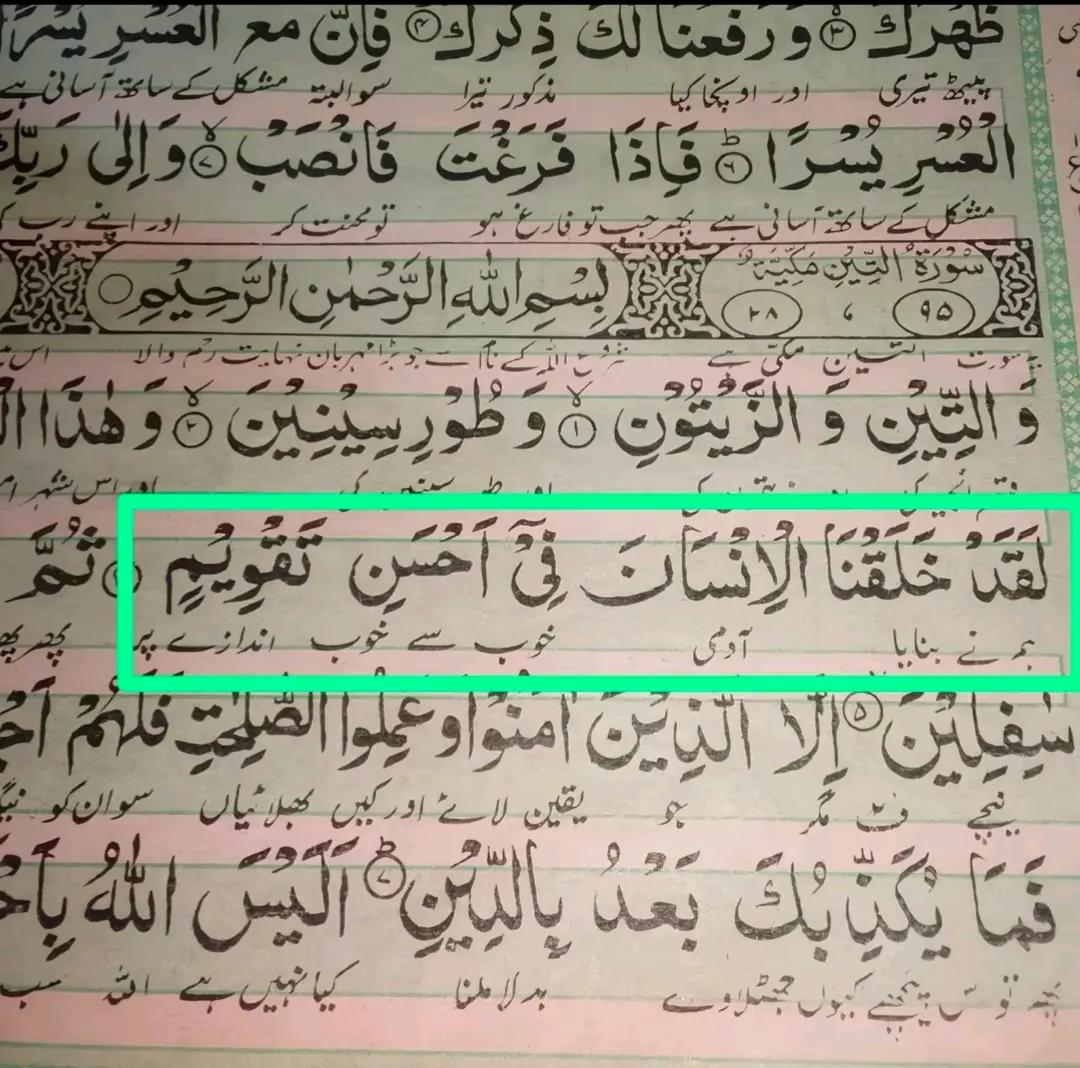 ظَهْرَكَ ۝۳ وَرَفَعْنَا لَكَ ذِكْرَكَ ۝۴ فَاِنَّ مَعَ الْعُسْرِ يُسْرًا
پیٹھ تیری اور اونچا کیا مذکور تیرا سو البتہ مشکل کے ساتھ آسانی ہے
الْعُسْرِ يُسْرًا ۝۶ؕ فَاِذَا فَرَغْتَ فَانْصَبْ ۝۷ۙ وَاِلٰى رَبِّكَ
مشکل کے ساتھ آسانی ہے پھر جب تو فارغ ہو تو محنت کر اور اپنے رب
سُوْرَةُ التِّيْنِ مَكِّيَّةٌ
۹۵ ۲۸
بِسْمِ اللّٰهِ الرَّحْمٰنِ الرَّحِيْمِ
یہ سورت التین مکی ہے شروع اللہ کے نام سے جو بڑا مہربان نہایت رحم والا
وَ التِّيْنِ وَ الزَّيْتُوْنِ ۝۱ۙ وَ طُوْرِ سِيْنِيْنَ ۝۲ۙ وَ هٰذَا
اور اس شہر
لَقَدْ خَلَقْنَا الْاِنْسَانَ فِيْٓ اَحْسَنِ تَقْوِيْمٍ ثُمَّ
ہم نے بنایا آدمی خوب سے خوب اندازے پر
سٰفِلِيْنَ ۝۵ۙ اِلَّا الَّذِيْنَ اٰمَنُوْا وَ عَمِلُوا الصّٰلِحٰتِ فَلَهُمْ
نیچے ف مگر جو یقین لائے اور کیں بھلائیاں سو ان کو
فَمَا يُكَذِّبُكَ بَعْدُ بِالدِّيْنِ ۝۷ؕ اَلَيْسَ اللّٰهُ
کیوں جھٹلاوے بدلا ملنا کیا نہیں ہے اللہ سب